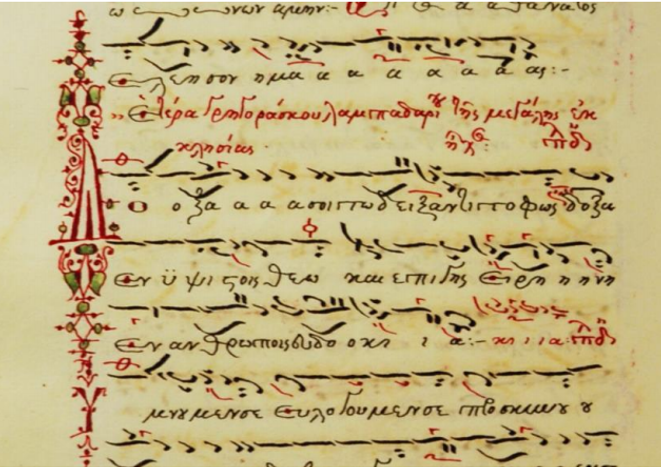 ω νων αμην:- α α θανατος
Ελεησον ημα α α α α α α ας:-
Ετέρα λαμπαδαρίου της μεγάλης εκ
κλησίας
ο ξα α α α σοι τω δειξαντι το φως δοξα
Εν ϋψιστοις θεω και επι γης Ειρη η νη
Εν ανθρωποις ευδο ο κι ι ι α:- κι ι ι α
μνουμεν σε Ευλογουμεν σε προσκυνου ου